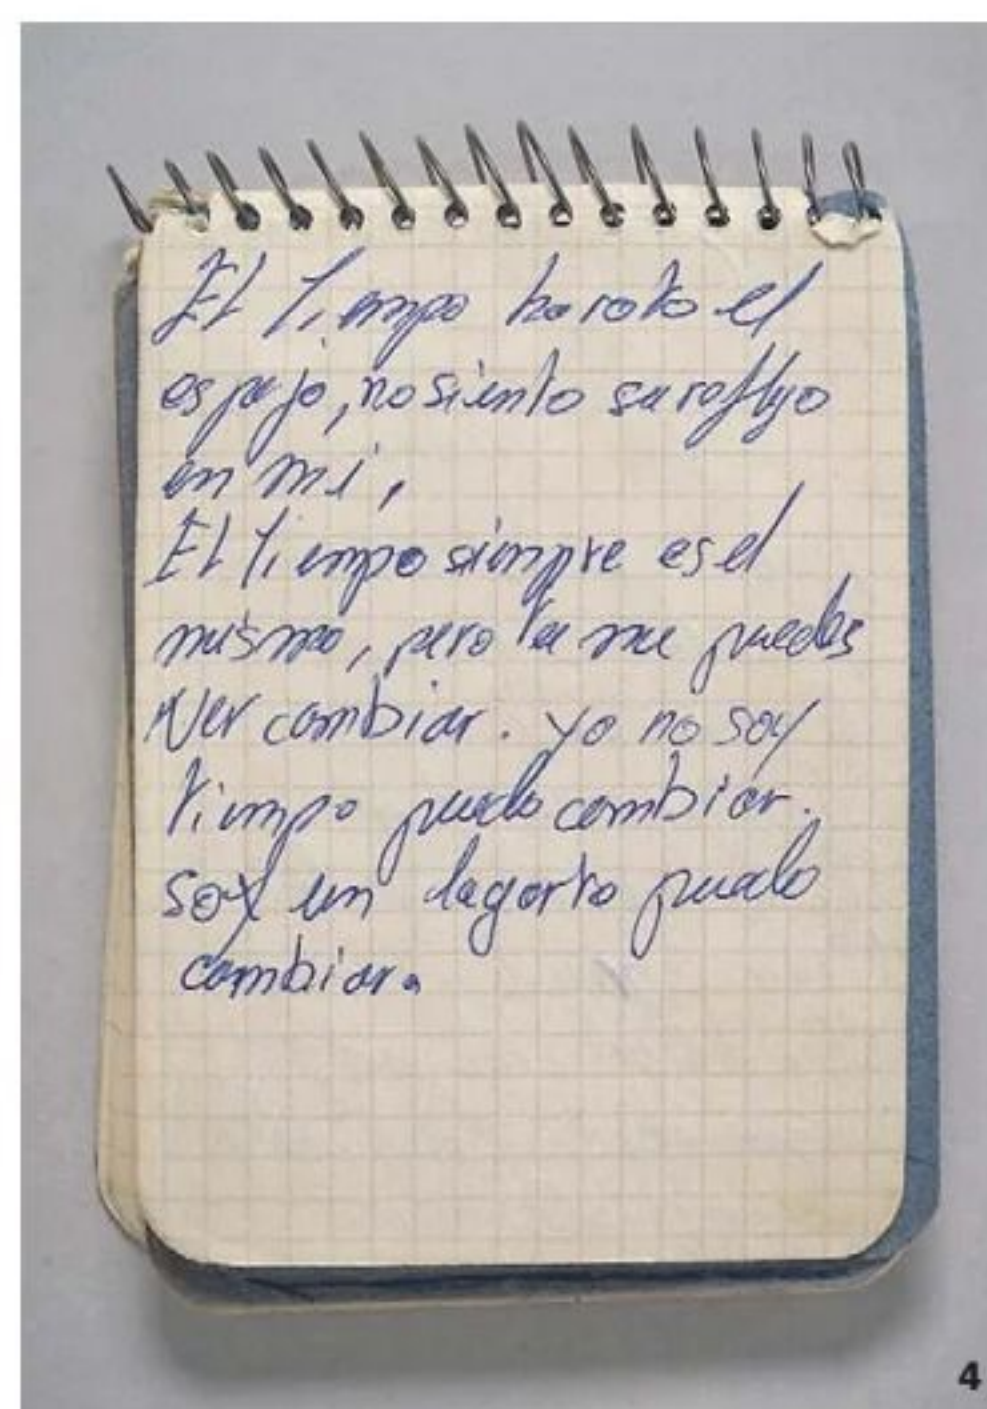 El Tiempo ha roto el
espejo, no siento su reflejo
en mi,
El Tiempo siempre es el
mismo, pero tu me puedes
Ver cambiar. yo no soy
tiempo puedo cambiar.
soy un lagarto puedo
cambiar.
4